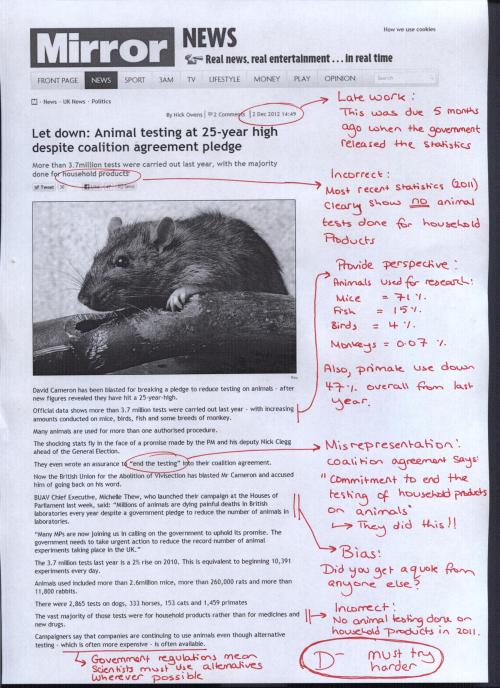 How we use cookies
Mirror NEWS
Real news, real entertainment... in real time
FRONT PAGE NEWS SPORT 3AM TV LIFESTYLE MONEY PLAY OPINION Search
News - UK News - Politics
By Nick Owens 2 Comments 2 Dec 2012 14:49
Let down: Animal testing at 25-year high
despite coalition agreement pledge
More than 3.7million tests were carried out last year, with the majority
done for household products
Tweet
Late work:
This was due 5 months
ago when the government
released the statistics
Incorrect:
Most recent statistics (2011)
Clearly show no animal
tests done for household
Products
Provide perspective:
Animals used for research:
Mice = 71%
Fish = 15%
Birds = 4%
Monkeys = 0.07%
Also, primate use down
47% overall from last
year.
David Cameron has been blasted for breaking a pledge to reduce testing on animals - after
new figures revealed they have hit a 25-year-high.
Official data shows more than 3.7 million tests were carried out last year - with increasing
amounts conducted on mice, birds, fish and some breeds of monkey.
Many animals are used for more than one authorised procedure.
The shocking stats fly in the face of a promise made by the PM and his deputy Nick Clegg
ahead of the General Election.
They even wrote an assurance to "end the testing" into their coalition agreement.
Now the British Union for the Abolition of Vivisection has blasted Mr Cameron and accused
him of going back on his word.
BUAV Chief Executive, Michelle Thew, who launched their campaign at the Houses of
Parliament last week, said: "Millions of animals are dying painful deaths in British
laboratories every year despite a government pledge to reduce the number of animals in
laboratories.
"Many MPs are now joining us in calling on the government to uphold its promise. The
government needs to take urgent action to reduce the record number of animal
experiments taking place in the UK."
The 3.7 million tests last year is a 2% rise on 2010. This is equivalent to beginning 10,391
experiments every day.
Animals used included more than 2.6million mice, more than 260,000 rats and more than
11,800 rabbits.
There were 2,865 tests on dogs, 333 horses, 153 cats and 1,459 primates
The vast majority of those tests were for household products rather than for medicines and
new drugs.
Campaigners say that companies are continuing to use animals even though alternative
testing - which is often more expensive - is often available.
Misrepresentation:
coalition agreement says:
"Commitment to end the
testing of household products
on animals"
They did this!!
Bias:
Did you get a quote from
anyone else?
Incorrect:
No animal testing done on
household products in 2011.
Government regulations mean
Scientists must use alternatives
wherever possible
D- must try
harder